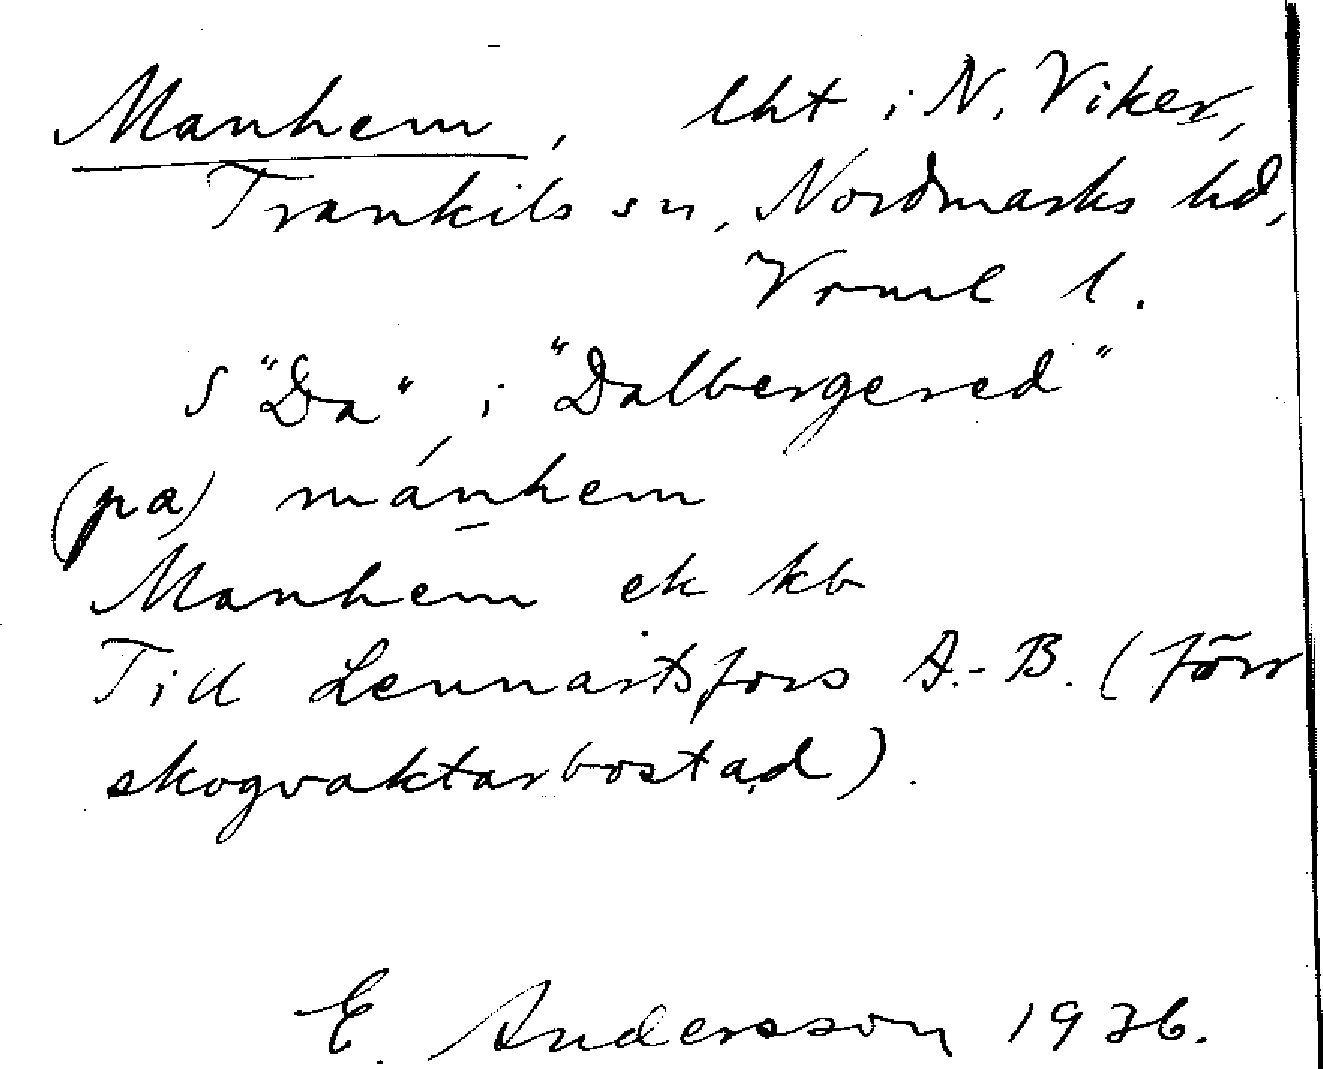 Manhem, lht i N. Viker,
Trankils sn, Nordmarks hd,
Vrml l.
S "Da" i "Dalbergered"
(pa) mánhem
Manhem ek kb
Till Lennartsfors A.-B. (förr
skogvaktarbostad).
E. Andersson 1936.